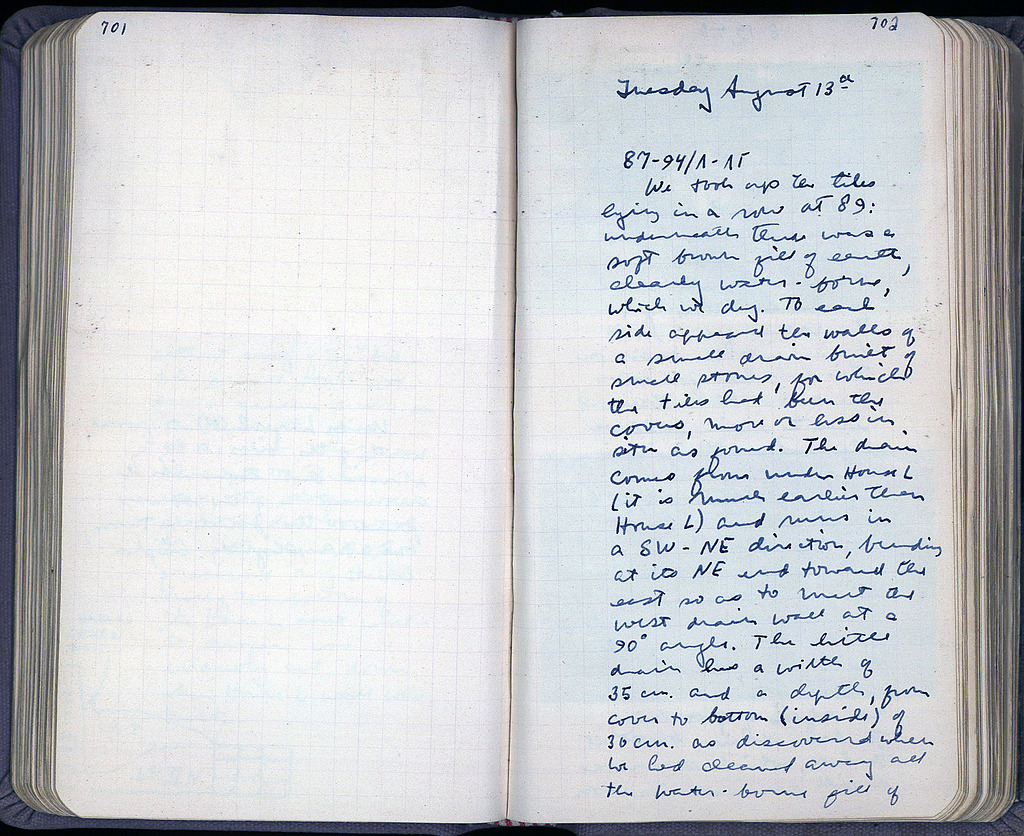 701
702
Tuesday August 13th
87-94/Λ-ΛΓ
We took up the tiles
lying in a row at 89:
underneath these was a
soft brown fill of earth,
clearly water-borne,
which we dug. To each
side appeared the walls of
a small drain built of
small stones, for which
the tiles had been the
covers, more or less in
situ as found. The drain
comes from under House L
(it is much earlier than
House L) and runs in
a SW-NE direction, bending
at its NE end toward the
east so as to meet the
west drain wall at a
90° angle. The little
drain has a width of
35 cm. and a depth, from
cover to bottom (inside) of
30 cm. as discovered when
we had cleared away all
the water-borne fill of